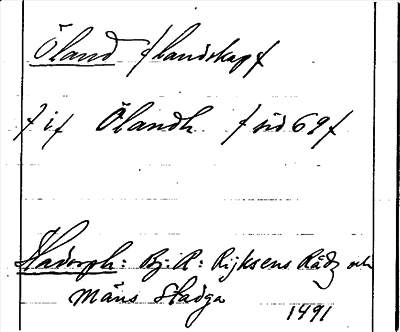 Öland /landskap/
/ i / Ölandh / sid 69 /
Hadorph: Bj. R: Rijksens Rådz och
Mäns Stadga
1491